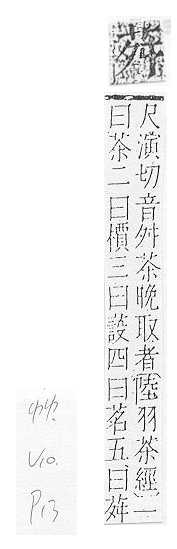 荈
尺演切音舛茶晚取者(陸羽茶經)一
曰茶二曰檟三曰蔎四曰茗五曰荈
V10.
P13